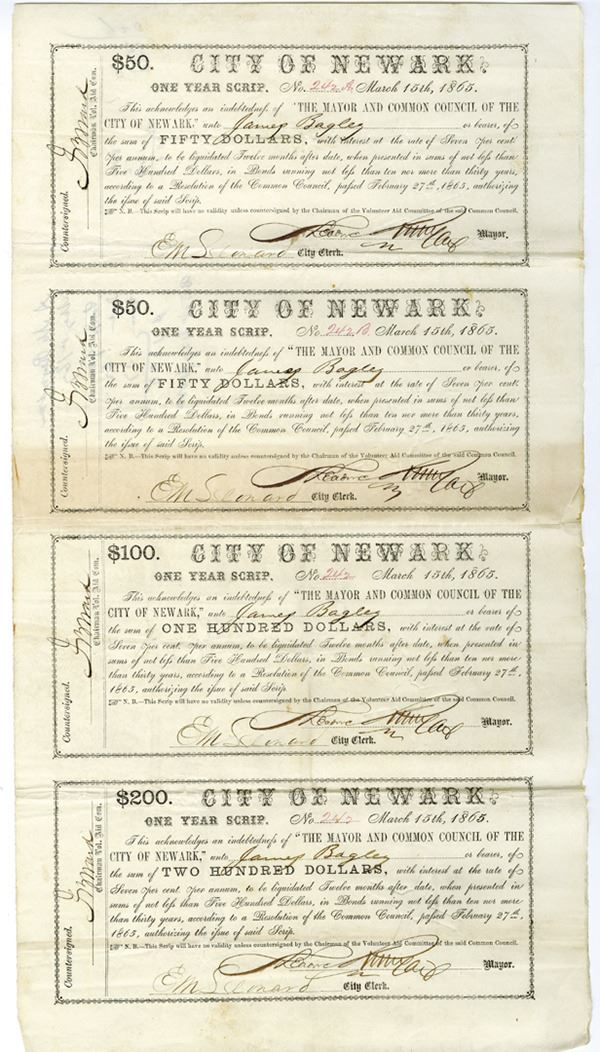 $50. CITY OF NEWARK.
ONE YEAR SCRIP. No. 242 A March 15th, 1865.
This acknowledges an indebtedness of "THE MAYOR AND COMMON COUNCIL OF THE
CITY OF NEWARK," unto James Bagley or bearer, of
the sum of FIFTY DOLLARS, with interest at the rate of Seven per cent.
per annum, to be liquidated Twelve months after date, when presented in sums of not less than
Five Hundred Dollars, in Bonds running not less than ten nor more than thirty years,
according to a Resolution of the Common Council, passed February 27th, 1865, authorizing
the issue of said Scrip.
N. B.—This Scrip will have no validity unless countersigned by the Chairman of the Volunteer Aid Committee of the said Common Council.
Mayor.
City Clerk.
Countersigned.
Chairman Vol. Aid Com.
$50. CITY OF NEWARK.
ONE YEAR SCRIP. No. 242 B March 15th, 1865.
This acknowledges an indebtedness of "THE MAYOR AND COMMON COUNCIL OF THE
CITY OF NEWARK," unto James Bagley or bearer, of
the sum of FIFTY DOLLARS, with interest at the rate of Seven per cent.
per annum, to be liquidated Twelve months after date, when presented in sums of not less than
Five Hundred Dollars, in Bonds running not less than ten nor more than thirty years,
according to a Resolution of the Common Council, passed February 27th, 1865, authorizing
the issue of said Scrip.
N. B.—This Scrip will have no validity unless countersigned by the Chairman of the Volunteer Aid Committee of the said Common Council.
Mayor.
City Clerk.
Countersigned.
Chairman Vol. Aid Com.
$100. CITY OF NEWARK.
ONE YEAR SCRIP. No. 242 March 15th, 1865.
This acknowledges an indebtedness of "THE MAYOR AND COMMON COUNCIL OF THE
CITY OF NEWARK," unto James Bagley or bearer of
the sum of ONE HUNDRED DOLLARS, with interest at the rate of
Seven per cent. per annum, to be liquidated Twelve months after date, when presented in
sums of not less than Five Hundred Dollars, in Bonds running not less than ten nor more
than thirty years, according to a Resolution of the Common Council, passed February 27th,
1865, authorizing the issue of said Scrip.
N. B.—This Scrip will have no validity unless countersigned by the Chairman of the Volunteer Aid Committee of the said Common Council.
Mayor.
City Clerk.
Countersigned.
Chairman Vol. Aid Com.
$200. CITY OF NEWARK.
ONE YEAR SCRIP. No. 242 March 15th, 1865.
This acknowledges an indebtedness of "THE MAYOR AND COMMON COUNCIL OF THE
CITY OF NEWARK," unto James Bagley or bearer, of
the sum of TWO HUNDRED DOLLARS, with interest at the rate of
Seven per cent. per annum, to be liquidated Twelve months after date, when presented in
sums of not less than Five Hundred Dollars, in Bonds running not less than ten nor more
than thirty years, according to a Resolution of the Common Council, passed February 27th,
1865, authorizing the issue of said Scrip.
N. B.—This Scrip will have no validity unless countersigned by the Chairman of the Volunteer Aid Committee of the said Common Council.
Mayor.
City Clerk.
Countersigned.
Chairman Vol. Aid Com.